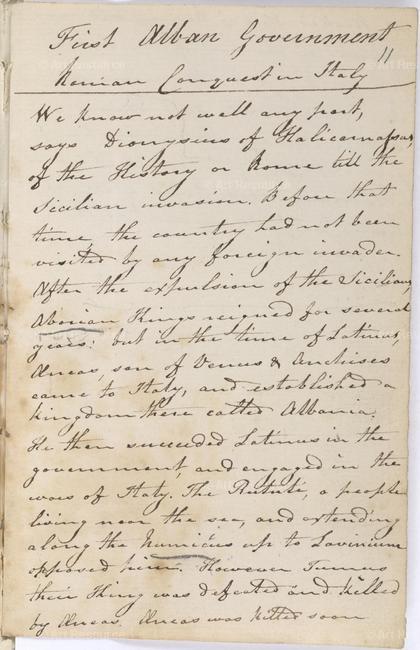 First Alban Government
11
Roman Conquest in Italy
We know not well any part,
says Dionysius of Halicarnassus,
of the History or Rome till the
Sicilian invasion. Before that
time, the country had not been
visited by any foreign invader.
After the expulsion of the Sicilians,
Aborian Kings reigned for several
years: but in the time of Latinus,
Æneas, son of Venus & Anchises
came to Italy, and established a
kingdom there called Albania.
He then succeeded Latinus in the
government, and engaged in the
wars of Italy. The Rutuli, a people
living near the sea, and extending
along the Numicus up to Lavinium
opposed him. However Turnus
their King was defeated and killed
by Æneas. Æneas was killed soon